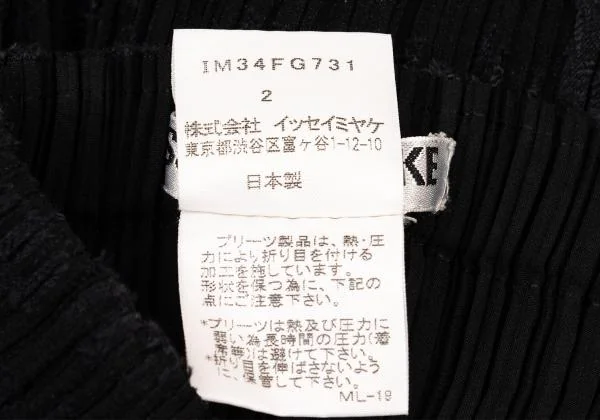 IM34FG731
2
株式会社 イッセイミヤケ
東京都渋谷区富ヶ谷1-12-10
日本製
KE
プリーツ製品は、熱・圧
力により折り目を付ける
加工を施しています。
形状を保つ為に、下記の
点にご注意下さい。
*プリーツは熱及び圧力に
弱い為長時間の圧力(着
席等)は避けて下さい。
*折り目を伸ばさないよう
に、保管して下さい。
ML-19